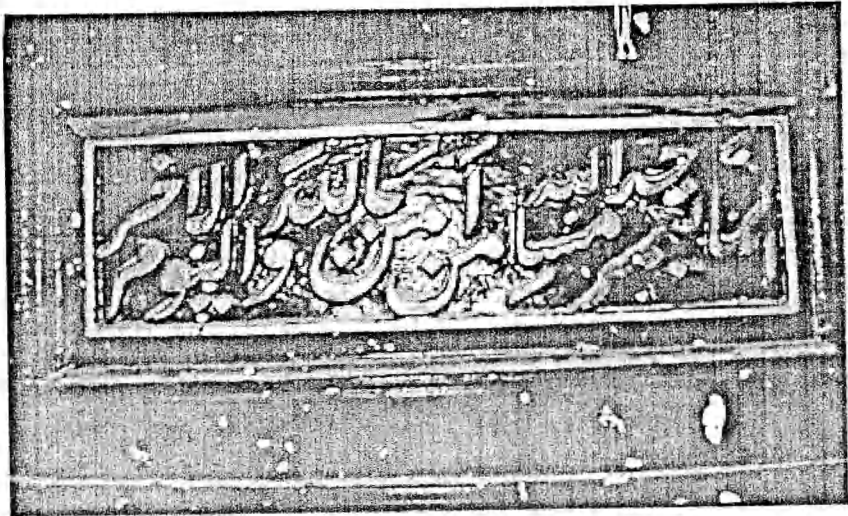 انما يعمر مساجد الله من آمن بالله واليوم الاخر